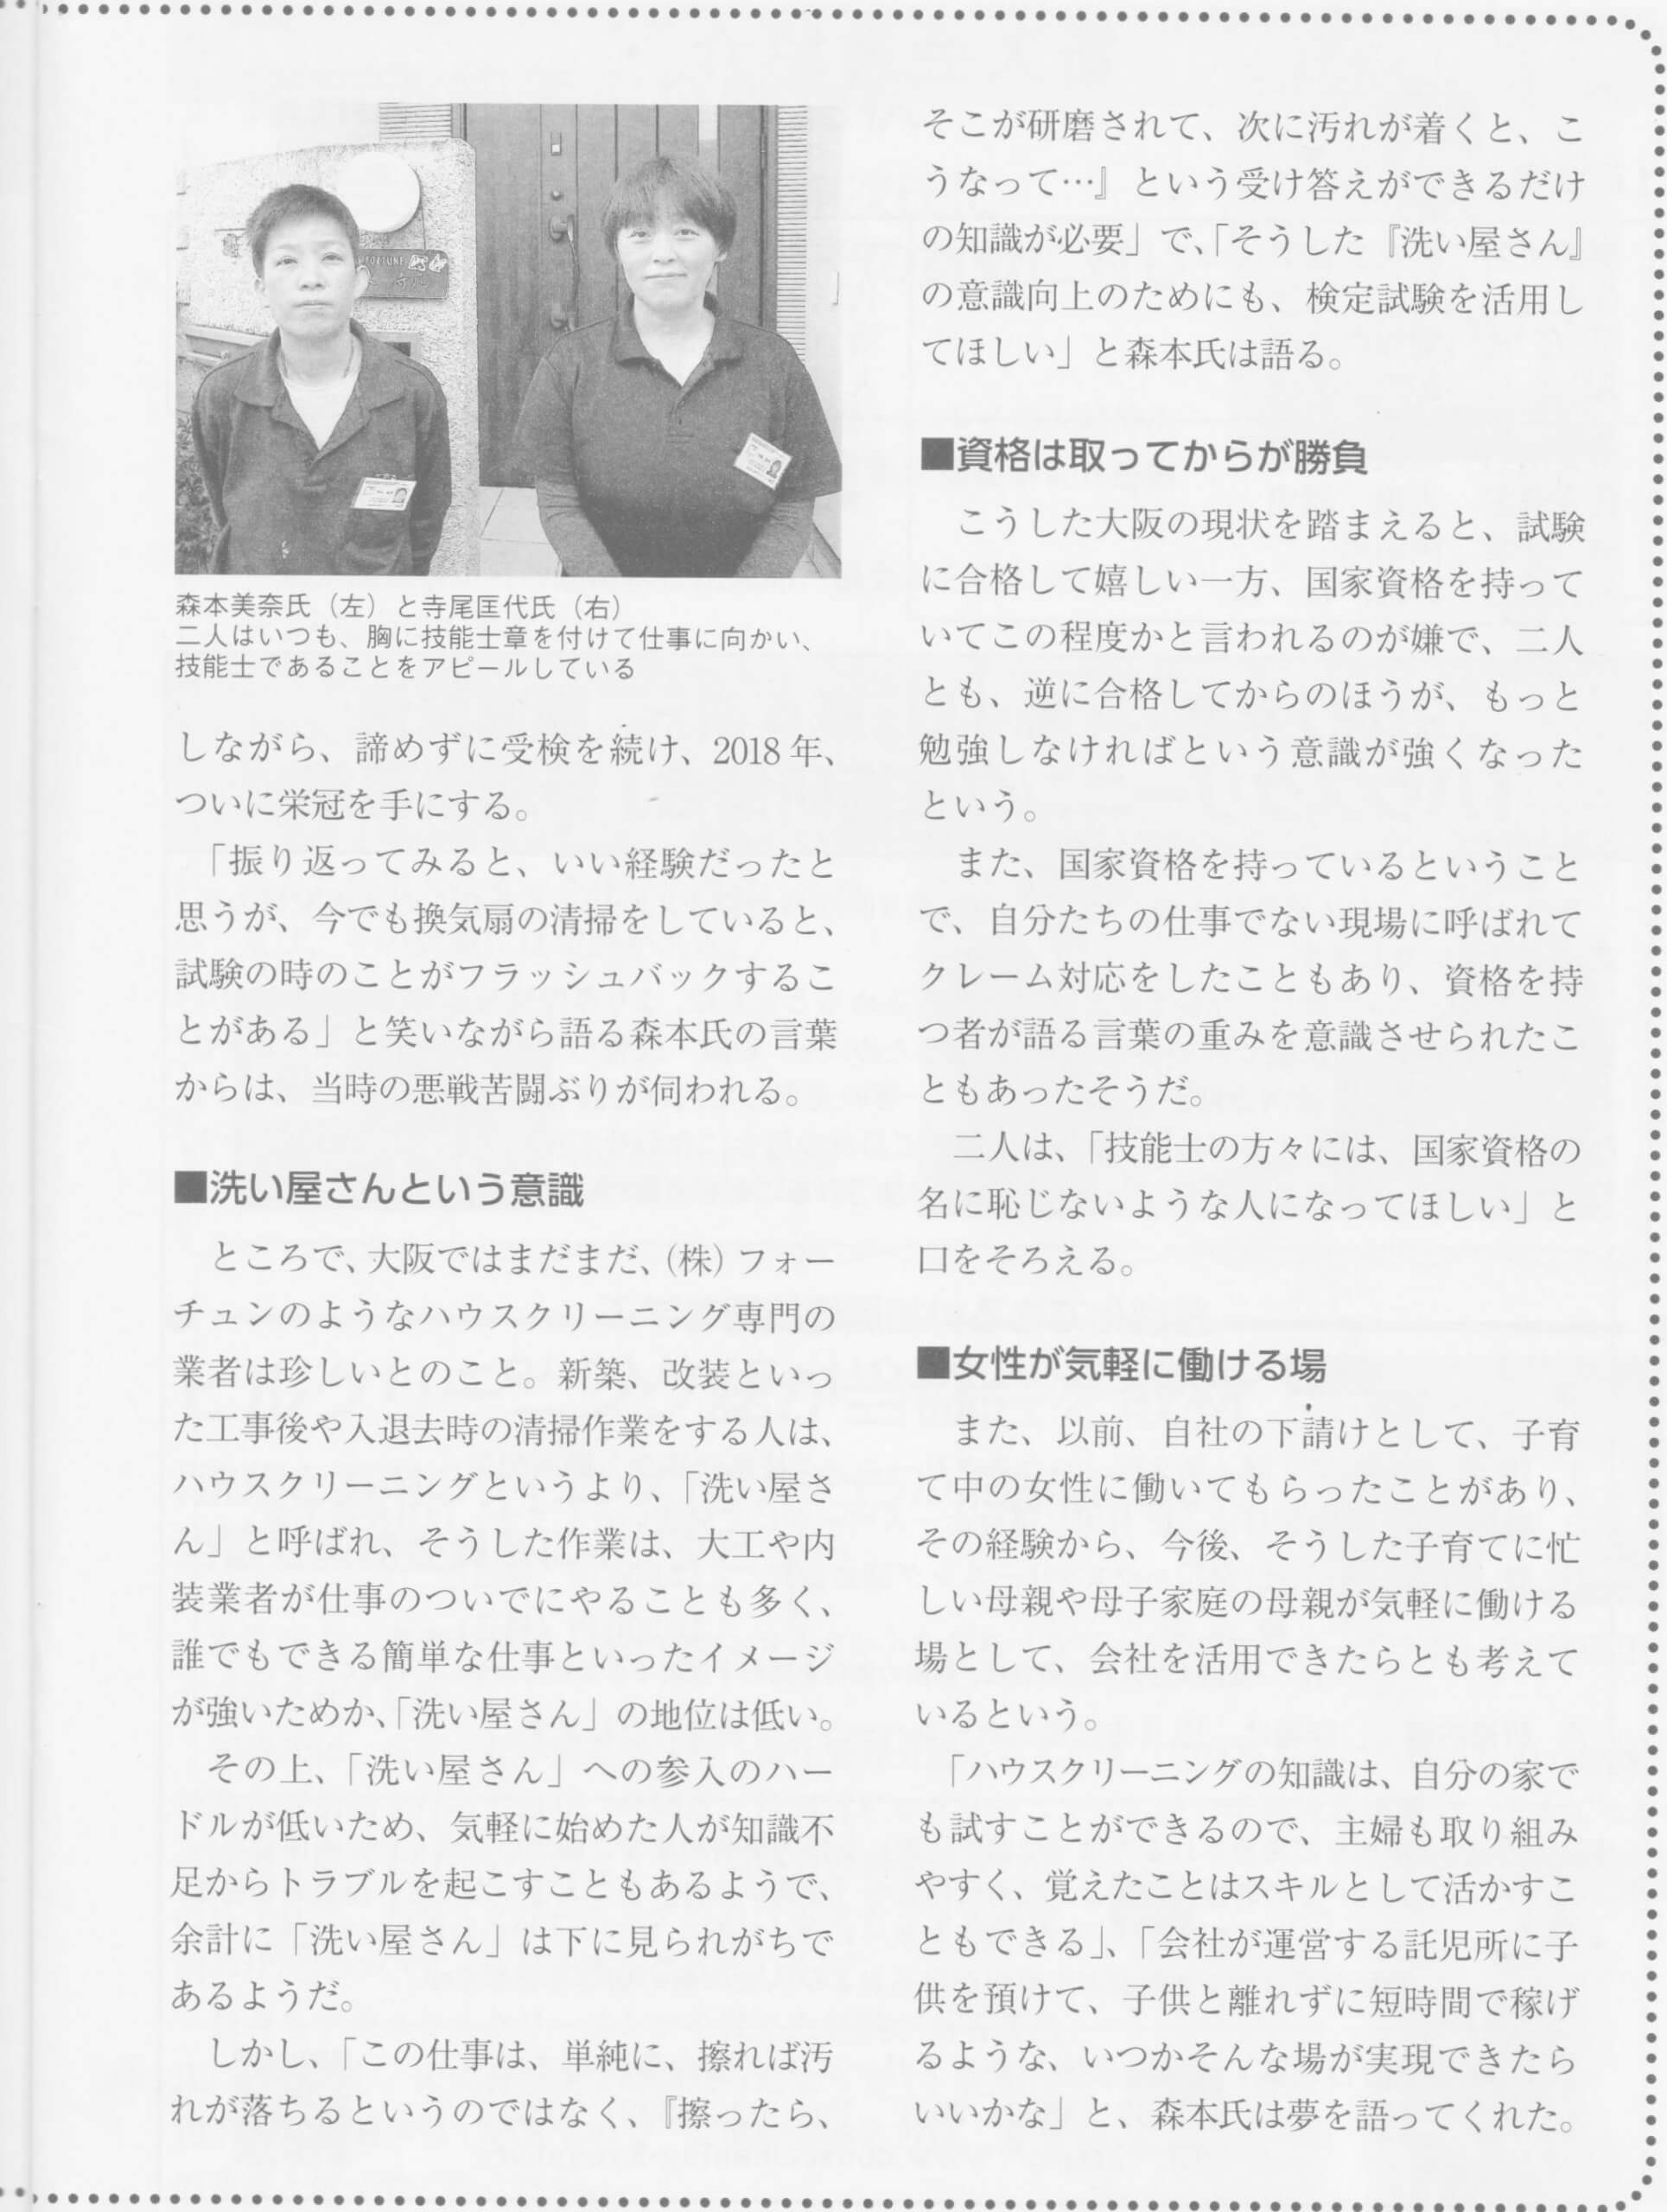 FORTUNE
森本美奈氏（左）と寺尾匡代氏（右）
二人はいつも、胸に技能士章を付けて仕事に向かい、
技能士であることをアピールしている
しながら、諦めずに受検を続け、2018 年、
ついに栄冠を手にする。
「振り返ってみると、いい経験だったと
思うが、今でも換気扇の清掃をしていると、
試験の時のことがフラッシュバックするこ
とがある」と笑いながら語る森本氏の言葉
からは、当時の悪戦苦闘ぶりが伺われる。
■洗い屋さんという意識
ところで、大阪ではまだまだ、（株）フォー
チュンのようなハウスクリーニング専門の
業者は珍しいとのこと。新築、改装といっ
た工事後や入退去時の清掃作業をする人は、
ハウスクリーニングというより、「洗い屋さ
ん」と呼ばれ、そうした作業は、大工や内
装業者が仕事のついでにやることも多く、
誰でもできる簡単な仕事といったイメージ
が強いためか、「洗い屋さん」の地位は低い。
その上、「洗い屋さん」への参入のハー
ドルが低いため、気軽に始めた人が知識不
足からトラブルを起こすこともあるようで、
余計に「洗い屋さん」は下に見られがちで
あるようだ。
しかし、「この仕事は、単純に、擦れば汚
れが落ちるというのではなく、『擦ったら、
そこが研磨されて、次に汚れが着くと、こ
うなって…』という受け答えができるだけ
の知識が必要」で、「そうした『洗い屋さん』
の意識向上のためにも、検定試験を活用し
てほしい」と森本氏は語る。
■資格は取ってからが勝負
こうした大阪の現状を踏まえると、試験
に合格して嬉しい一方、国家資格を持って
いてこの程度かと言われるのが嫌で、二人
とも、逆に合格してからのほうが、もっと
勉強しなければという意識が強くなった
という。
また、国家資格を持っているということ
で、自分たちの仕事でない現場に呼ばれて
クレーム対応をしたこともあり、資格を持
つ者が語る言葉の重みを意識させられたこ
ともあったそうだ。
二人は、「技能士の方々には、国家資格の
名に恥じないような人になってほしい」と
口をそろえる。
■女性が気軽に働ける場
また、以前、自社の下請けとして、子育
て中の女性に働いてもらったことがあり、
その経験から、今後、そうした子育てに忙
しい母親や母子家庭の母親が気軽に働ける
場として、会社を活用できたらとも考えて
いるという。
「ハウスクリーニングの知識は、自分の家で
も試すことができるので、主婦も取り組み
やすく、覚えたことはスキルとして活かすこ
ともできる」、「会社が運営する託児所に子
供を預けて、子供と離れずに短時間で稼げ
るような、いつかそんな場が実現できたら
いいかな」と、森本氏は夢を語ってくれた。